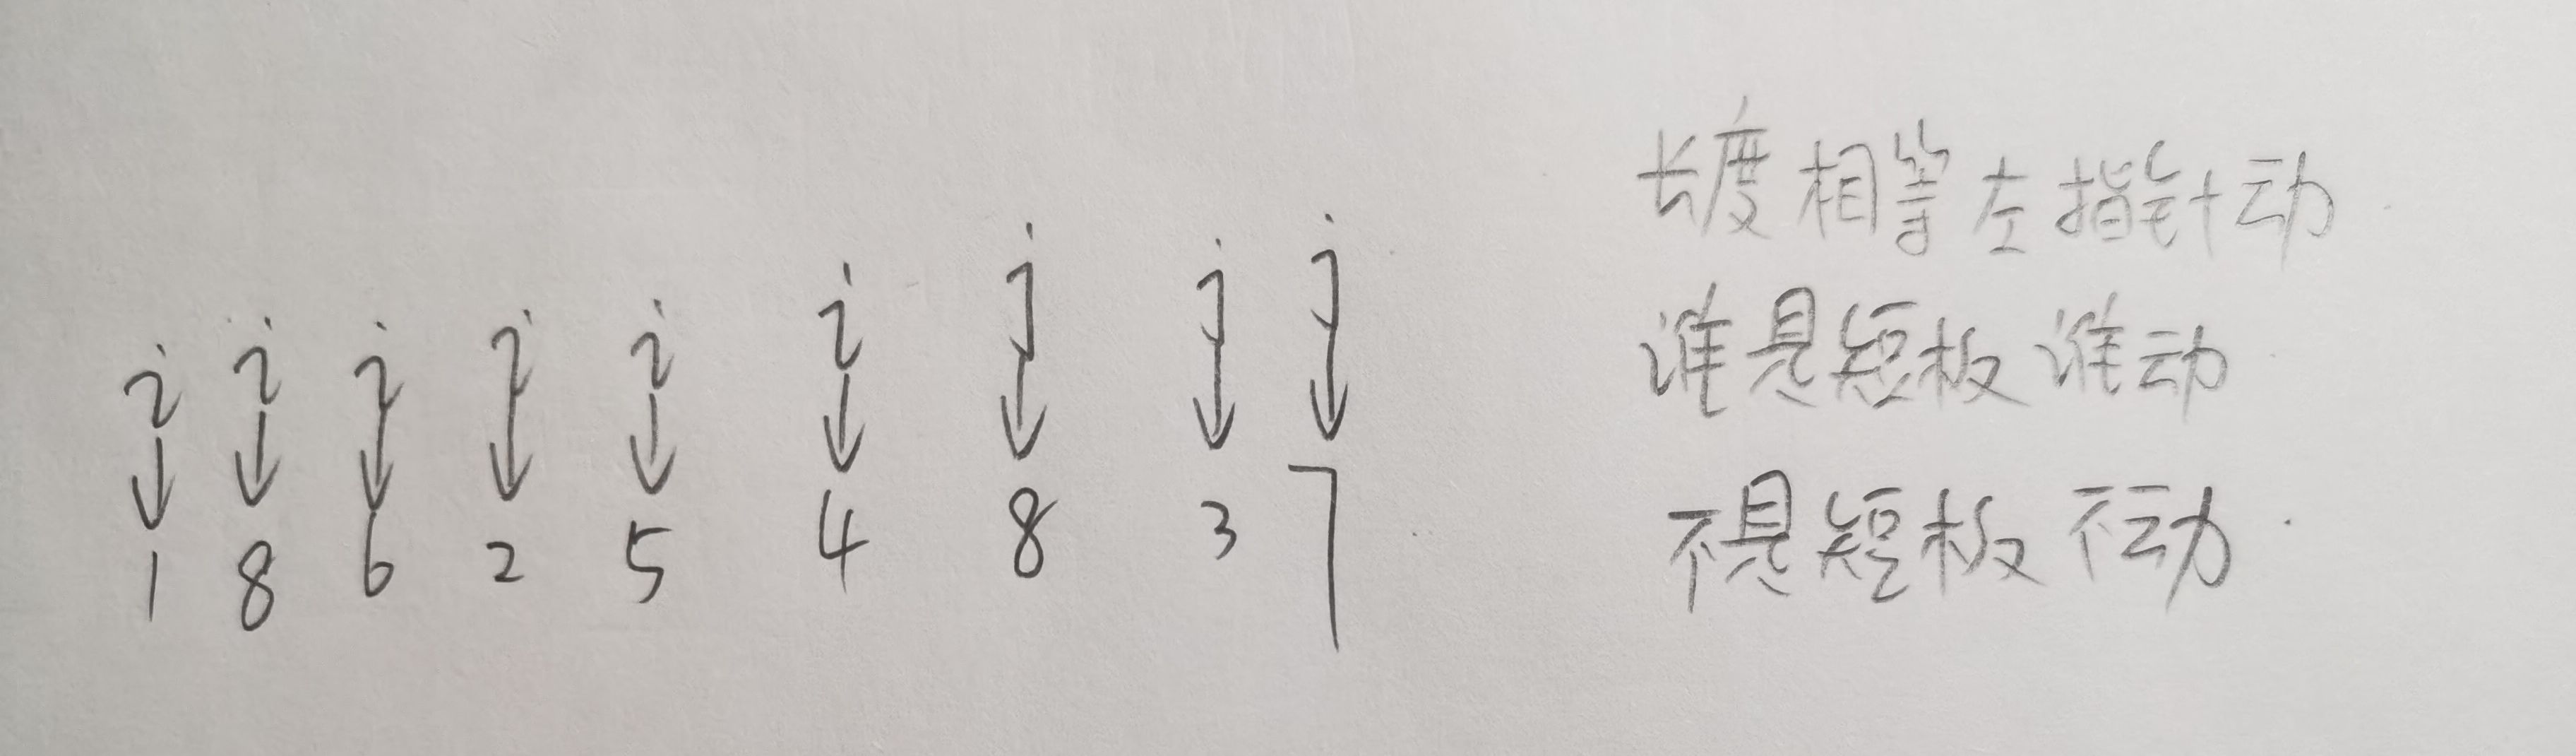 i i i i i i j j j
1 8 6 2 5 4 8 3 7
长度相等左指针动
谁是短板谁动
不是短板不动.